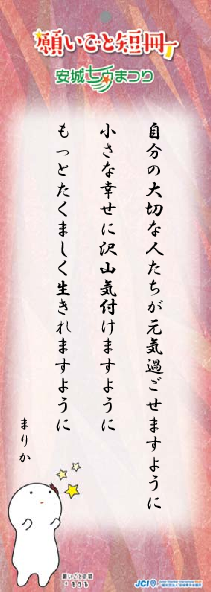 願いごと短冊
安城七夕まつり
自分の大切な人たちが元気過ごせますように
小さな幸せに沢山気付けますように
もっとたくましく生きれますように
まりか
願いごと短冊
JCI